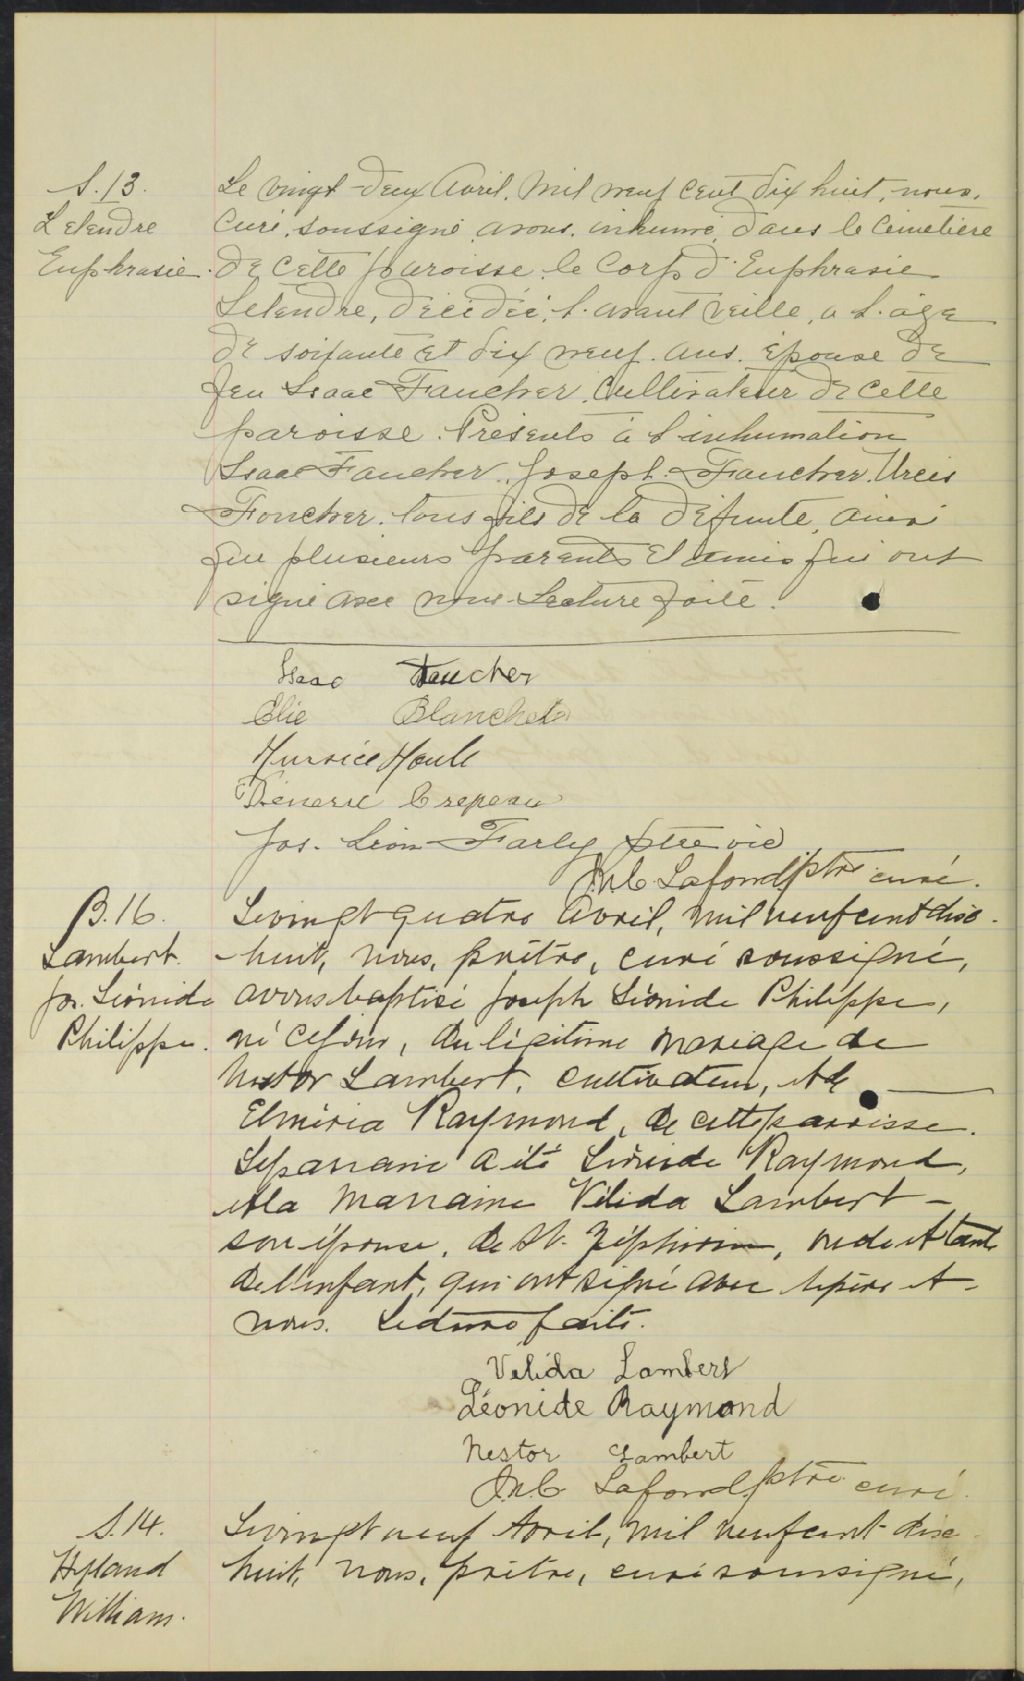 S. 13.
Letendre
Euphrasie.
Le vingt-deux Avril, mil neuf cent dix huit, nous,
Curé, soussigné, avons, inhumé, dans le cimetière
de cette paroisse, le corps d'Euphrasie
Letendre, décédée, l'avant veille, a l'âge
de soixante et dix neuf ans. Épouse de
feu Isaac Faucher, cultivateur de cette
paroisse. Présents à l'inhumation
Isaac Faucher, Joseph Faucher,
Foucher, tous fils de la défunte, ainsi
que plusieurs parents et amis qui ont
signé avec nous. Lecture faite.
Isaac Faucher
Elie Blanchet
Houle
Crepeau
Jos. Léon Farly ptre vic
J.N.C. Lafond ptre curé.
B. 16.
Lambert.
Jos. Léonide
Philippe.
Le vingt quatre Avril, mil neuf cent dix-
-huit, nous, prêtre, curé soussigné,
avons baptisé Joseph Léonide Philippe,
né ce jour, du légitime mariage de
Nestor Lambert, cultivateur, et de
Elméria Raymond, de cette paroisse.
Le parrain a été Léonide Raymond,
et la marraine Vélida Lambert -
son épouse, de St. Zéphirin, oncle et tante
de l'enfant, qui ont signé avec le père et
nous. Lecture faite.
Velida Lambert
Léonide Raymond
Nestor Lambert
J.N.C. Lafond ptre curé.
S. 14.
Hyland
William.
Le vingt neuf Avril, mil neuf cent dix
huit, nous, prêtre, curé soussigné,